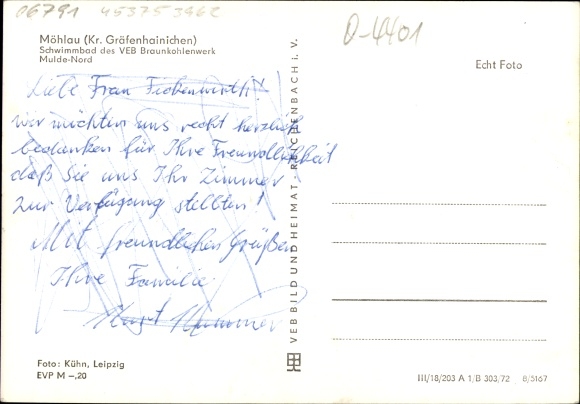 06791 453753962
O-4401
Möhlau (Kr. Gräfenhainichen)
Schwimmbad des VEB Braunkohlenwerk
Mulde-Nord
Echt Foto
Liebe Frau
wir möchten uns recht herzlich
bedanken für Ihre Freundlichkeit
daß Sie uns Ihr Zimmer
zur Verfügung stellten!
Mit freundlichen Grüßen
Ihre Familie
VEB BILD UND HEIMAT REICHENBACH i. V.
Foto: Kühn, Leipzig
EVP M –,20
III/18/203 A 1/B 303/72 8/5167